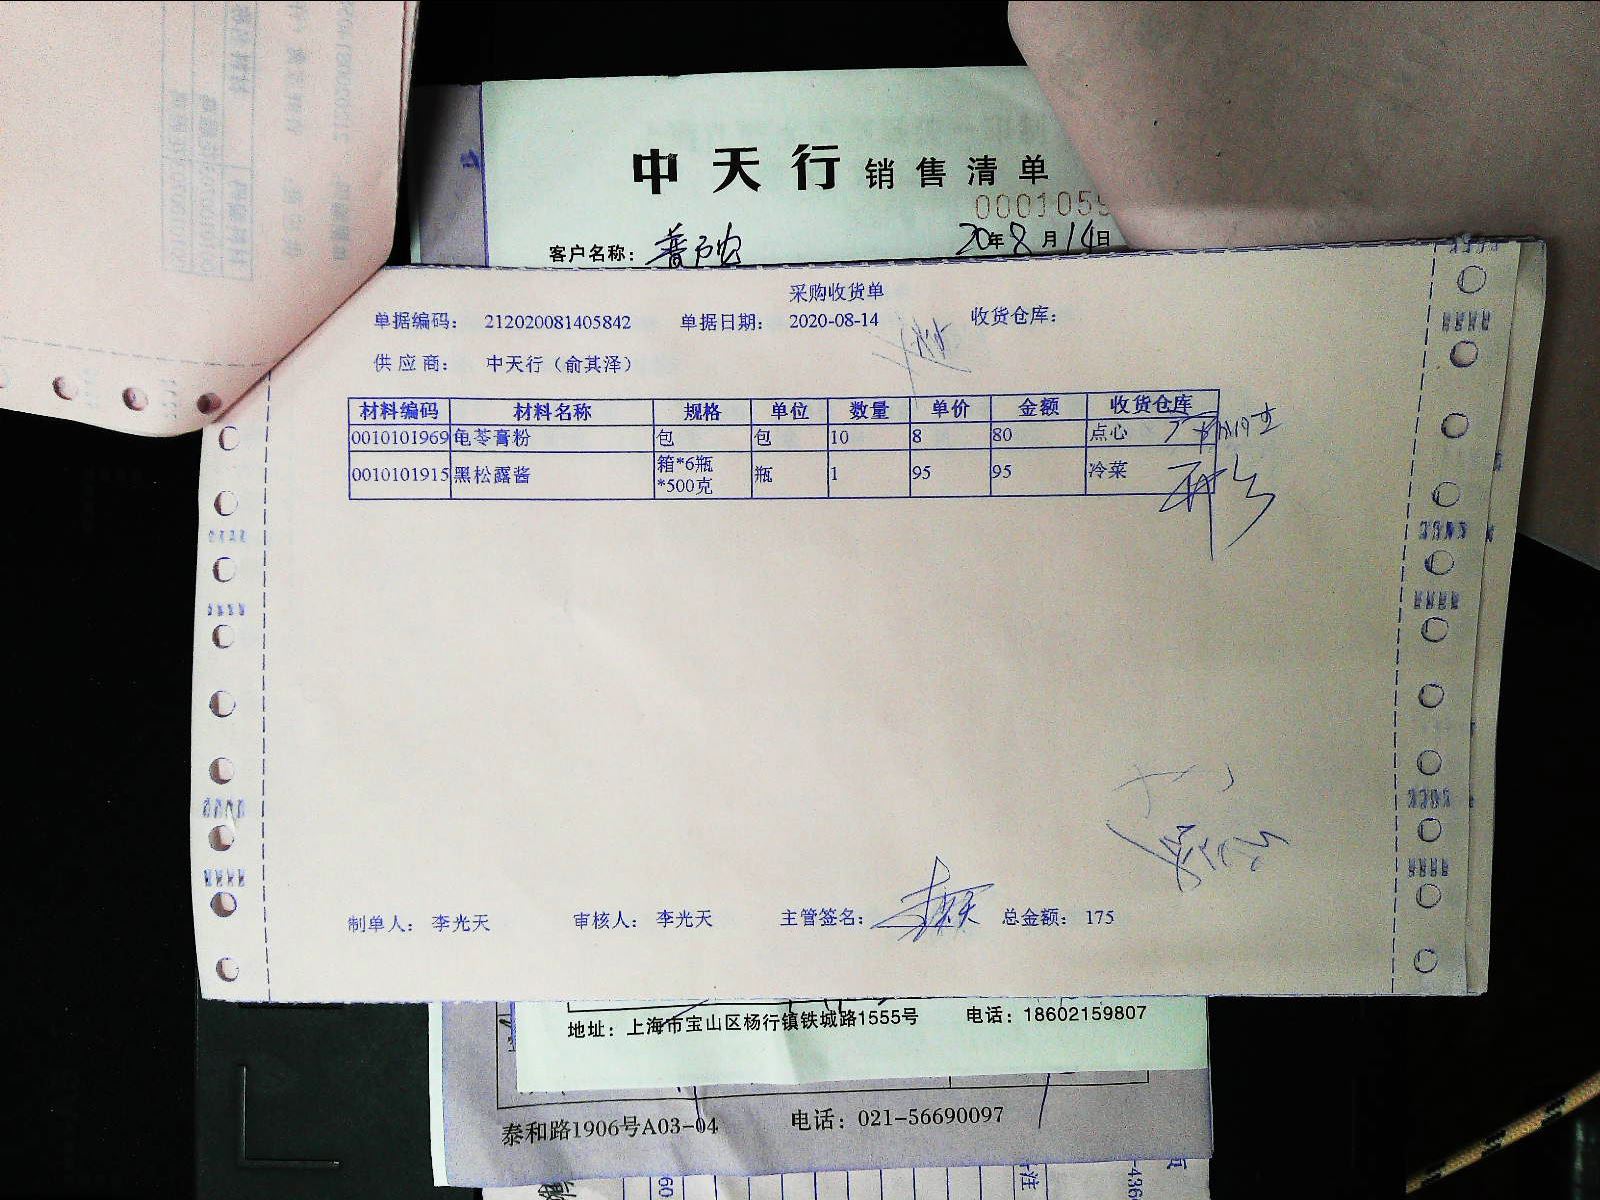 中天行销售清单
0001059
客户名称:
20年8月14日
采购收货单
单据编码: 212020081405842 单据日期: 2020-08-14 收货仓库:
供应商: 中天行（俞其泽）
材料编码 材料名称 规格 单位 数量 单价 金额 收货仓库
0010101969 龟苓膏粉 包 包 10 8 80 点心
0010101915 黑松露酱 箱*6瓶*500克 瓶 1 95 95 冷菜
制单人: 李光天 审核人: 李光天 主管签名: 总金额: 175
地址: 上海市宝山区杨行镇铁城路1555号 电话: 18602159807
泰和路1906号A03-04 电话: 021-56690097